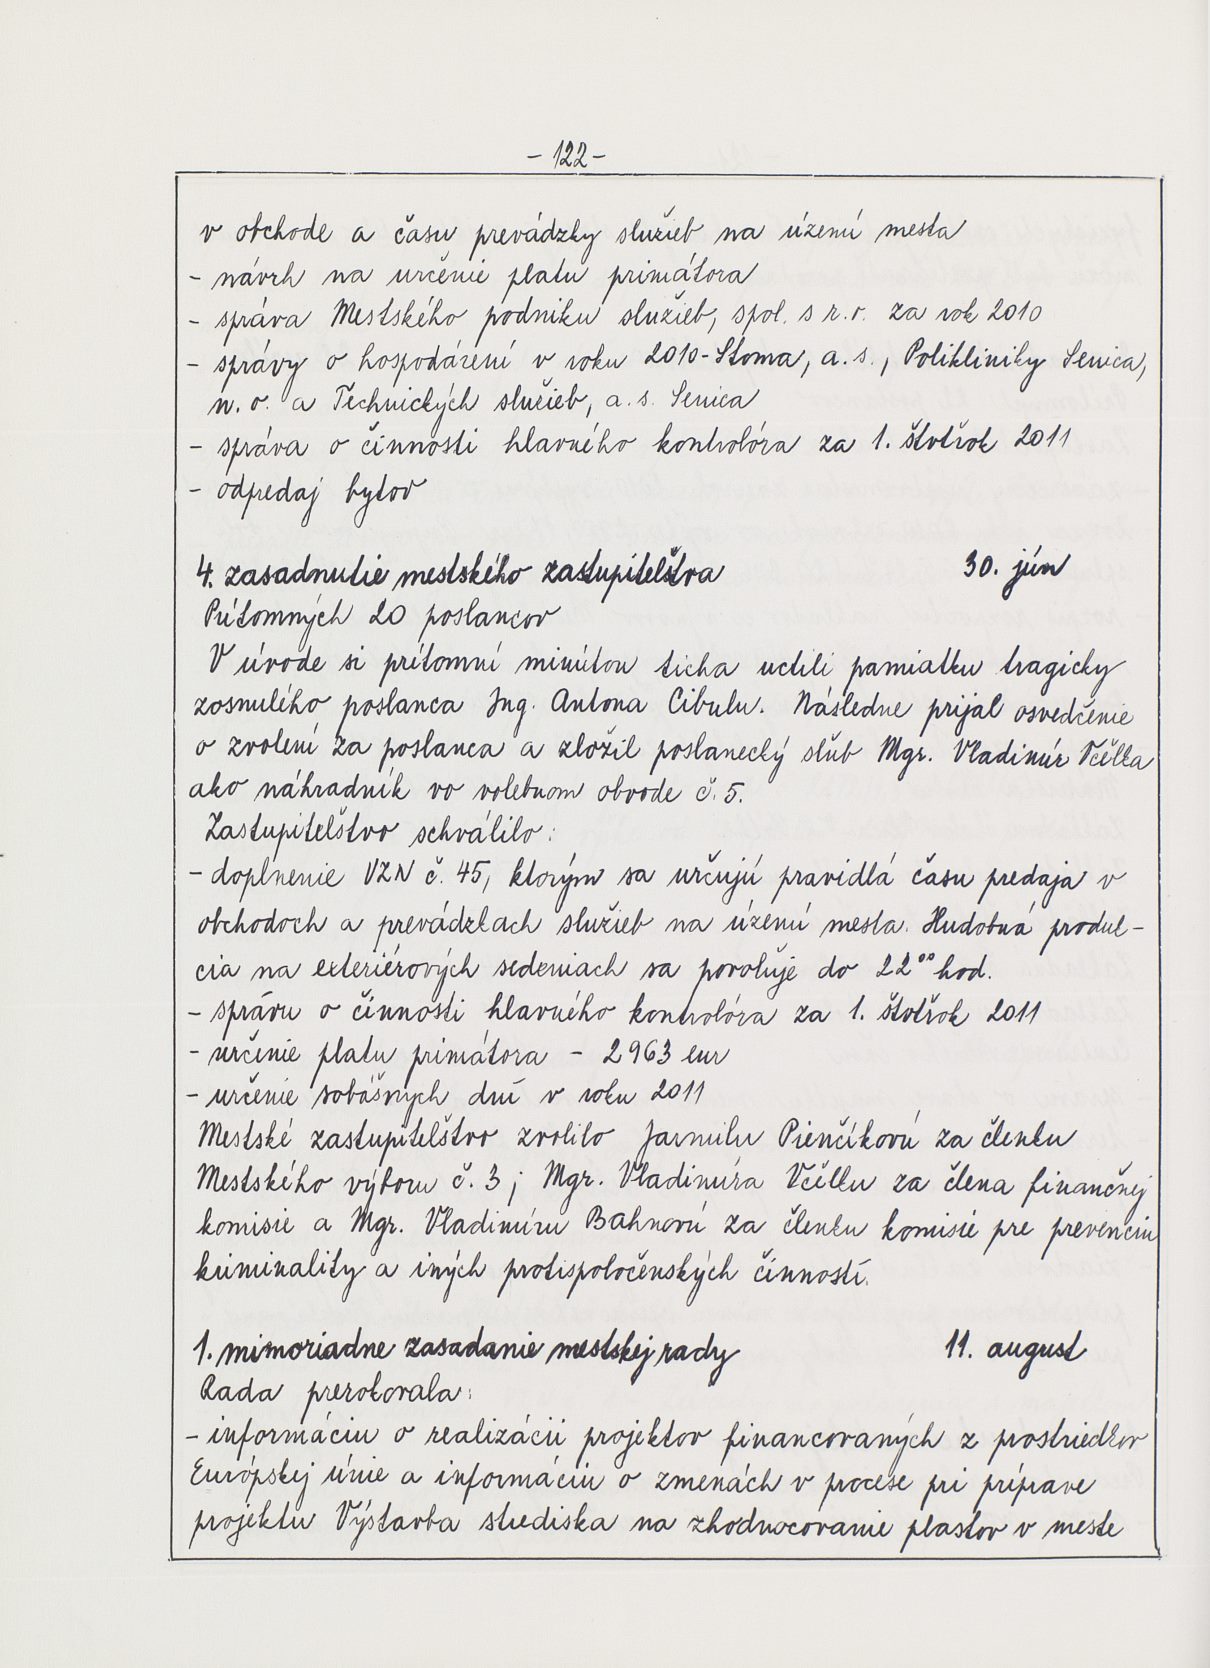 - 122 -
v obchode a času prevádzky služieb na území mesta
- návrh na určenie platu primátora
- správa Mestského podniku služieb, spol. s r.o. za rok 2010
- správy o hospodárení v roku 2010 - Stoma, a.s., Polikliniky Senica,
n.o. a Technických služieb, a.s. Senica
- správa o činnosti hlavného kontrolóra za 1. štvťrok 2011
- odpredaj bytov
4. zasadnutie mestského zastupiteľstva 30. jún
Prítomných 20 poslancov
V úvode si prítomní minútou ticha uctili pamiatku tragicky
zosnulého poslanca Ing. Antona Cibulu. Následne prijal osvedčenie
o zvolení za poslanca a zložil poslanecký sľub Mgr. Vladimír Včelka
ako náhradník vo volebnom obvode č. 5.
Zastupiteľstvo schválilo:
- doplnenie VZN č. 45, ktorým sa určujú pravidlá času predaja v
obchodoch a prevádzkach služieb na území mesta. Hudobná produk-
cia na exteriérových sedeniach sa povoľuje do 22⁰⁰ hod.
- správu o činnosti hlavného kontrolóra za 1. štvťrok 2011
- určenie platu primátora - 2963 eur
- určenie sobášnych dní v roku 2011
Mestské zastupiteľstvo zvolilo Jarmilu Pienčíkovú za členku
Mestského výboru č. 3; Mgr. Vladimíra Včelku za člena finančnej
komisie a Mgr. Vladimíru Bahnovú za členku komisie pre prevenciu
kriminality a iných protispoločenských činností.
1. mimoriadne zasadanie mestskej rady 11. august
Rada prerokovala:
- informáciu o realizácii projektov financovaných z prostriedkov
Európskej únie a informáciu o zmenách v procese pri príprave
projektu Výstavba strediska na zhodnocovanie plastov v meste